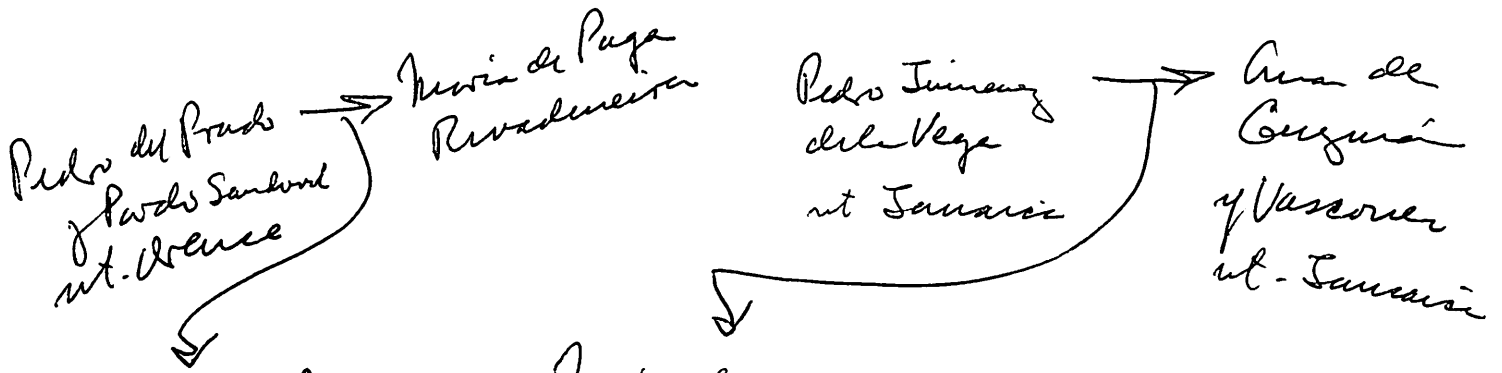 Pedro del Prado
y Pardo Sandoval
nt. Orense
Maria de Puga
Rivadeneira
Pedro Jimenez
de la Vega
nt Jamaica
Ana de
Guzmán
y Vasconcer
nt - Jamaica